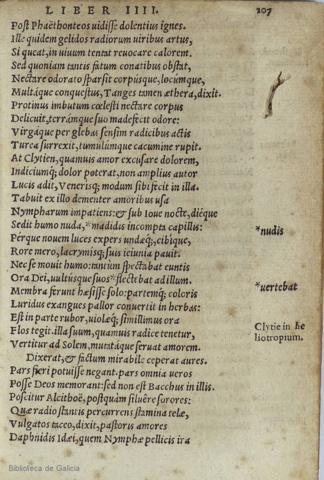 LIBER IIII. 207
Post Phaëthonteos uidisse dolentius ignes.
Ille quidem gelidos radiorum uiribus artus,
Si queat, in uiuum tentat reuocare calorem.
Sed quoniam tantis fatum conatibus obstat,
Nectare odorato sparsit corpúsque, locúmque,
Multáque conquestus, Tanges tamen æthera, dixit.
Protinus imbutum cœlesti nectare corpus
Delicuit, terrámque suo madefecit odore:
Virgáque per glebas sensim radicibus actis
Turea surrexit, tumulúmque cacumine rupit.
At Clytien, quamuis amor excusare dolorem,
Indiciumq; dolor poterat, non amplius autor
Lucis adit, Venerisq; modum sibi fecit in illa.
Tabuit ex illo dementer amoribus usa
Nympharum impatiens: & sub Ioue nocte, diéque
Sedit humo nuda, *madidis incompta capillis:
*nudis
Pérque nouem luces expers undæq;, cibique,
Rore mero, lacrymisq; suis ieiunia pauit.
Nec se mouit humo: tantùm spectabat euntis
Ora Dei, uultúsque suos *flectebat ad illum.
*uertebat
Membra ferunt hæsisse solo: partémq; coloris
Luridus exangues pallor conuertit in herbas:
Est in parte rubor, uiolæq; simillimus ora
Clytie in he
Flos tegit. illa suum, quamuis radice tenetur,
liotropium.
Vertitur ad Solem, mutatáque seruat amorem.
Dixerat, & factum mirabile ceperat aures.
Pars fieri potuisse negant. pars omnia ueros
Posse Deos memorant: sed non est Bacchus in illis.
Poscitur Alcithoë, postquàm siluêre sorores:
Quæ radio stantis percurrens stamina telæ,
Vulgatos taceo, dixit, pastoris amores
Daphnidis Idæi, quem Nymphæ pellicis ira
Biblioteca de Galicia